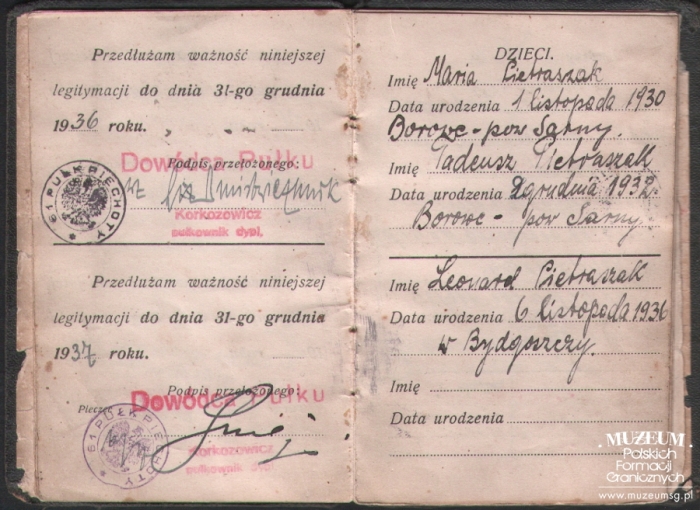 Przedłużam ważność niniejszej
legitymacji do dnia 31-go grudnia
1936 roku.
Podpis przełożonego:
Dowódca Pułku
Korkozowicz
pułkownik dypl.
* 61 PUŁK PIECHOTY *
Przedłużam ważność niniejszej
legitymacji do dnia 31-go grudnia
1937 roku.
Podpis przełożonego:
Dowódca Pułku
Pieczęć
Korkozowicz
pułkownik dypl.
* 61 PUŁK PIECHOTY *
DZIECI.
Imię Maria Pietraszak
Data urodzenia 1 listopada 1930
Borowe - pow Sarny.
Imię Tadeusz Pietraszak
Data urodzenia 2 grudnia 1932
Borowe - pow Sarny
Imię Leonard Pietraszak
Data urodzenia 6 listopada 1936
w Bydgoszczy.
Imię
Data urodzenia
• MUZEUM •
Polskich
Formacji
Granicznych
www.muzeumsg.pl